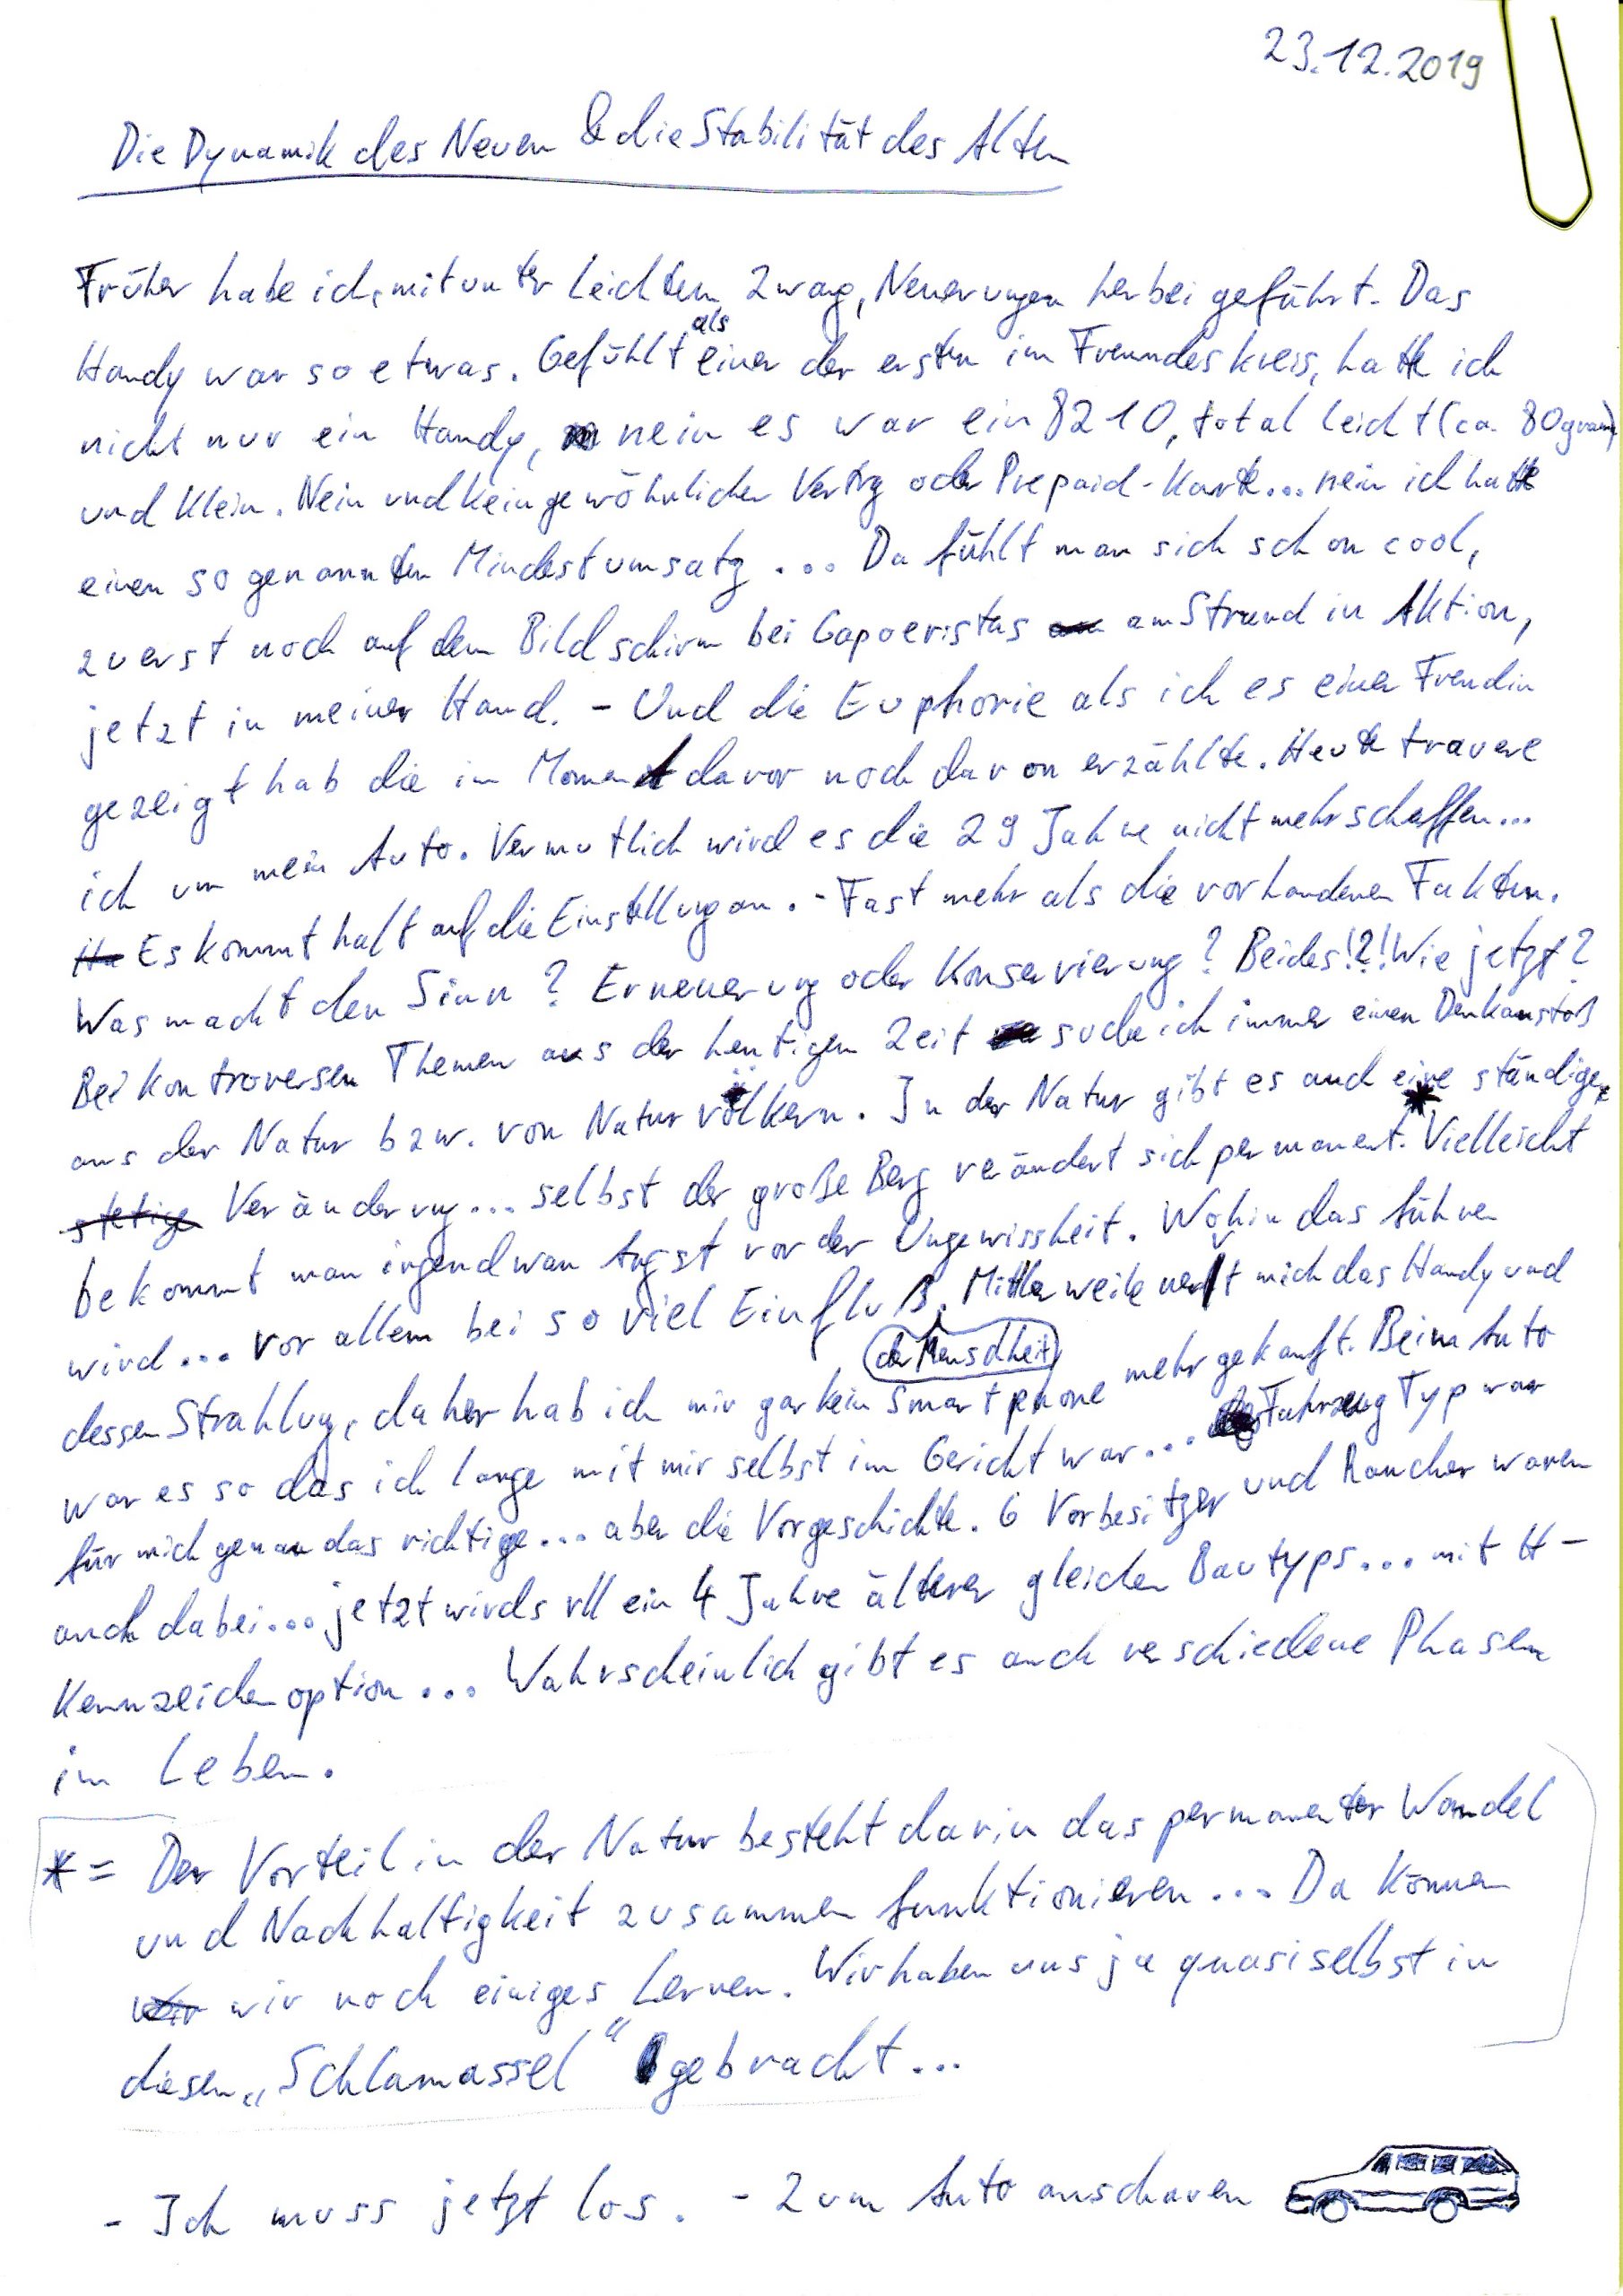 23.12.2019
Die Dynamik des Neuen & die Stabilität des Alten
Früher habe ich, mitunter leichtem Zwang, Neuerungen herbei geführt. Das
Handy war so etwas. Gefühlt als einer der ersten im Freundeskreis, hatte ich
nicht nur ein Handy, nein es war ein 8210, total leicht (ca. 80gramm)
und klein. Nein und kein gewöhnlicher Vertrg oder Prepaid-Karte... nein ich hatte
einen sogenannten Mindestumsatz ... Da fühlt man sich schon cool,
zuerst noch auf dem Bildschirm bei Capoeristas am Strand in Aktion,
jetzt in meiner Hand. - Und die Euphorie als ich es einer Freudin
gezeigt hab die im Moment davor noch davon erzählte. Heute trauere
ich um mein Auto. Vermutlich wird es die 29 Jahre nicht mehr schaffen...
Es kommt halt auf die Einstellung an. - Fast mehr als die vorhandenen Fakten.
Was macht den Sinn? Erneuerung oder Konservierung? Beides!?! Wie jetzt?
Bei kontroversen Themen aus der heutigen Zeit suche ich immer einen Denkanstoß
aus der Natur bzw. von Naturvölkern. In der Natur gibt es auch eine ständige
stetige Veränderung... selbst der große Berg verändert sich permanent.* Vielleicht
bekommt man irgendwan Angst vor der Ungewissheit. Wohin das führen
wird... vor allem bei so viel Einfluß der Menschheit. Mittlerweile nervt mich das Handy und
dessen Strahlung, daher hab ich mir gar kein Smartphone mehr gekauft. Beim Auto
war es so das ich lange mit mir selbst im Gericht war... Fahrzeug Typ war
für mich genau das richtige... aber die Vorgeschichte. 6 Vorbesitzer und Raucher waren
auch dabei... jetzt wirds vll ein 4 Jahre älterer gleichen Bautyps... mit H-
Kennzeichenoption... Wahrscheinlich gibt es auch verschiedene Phasen
im Leben.
* = Der Vorteil in der Natur besteht darin das permanenter Wandel
und Nachhaltigkeit zusammen funktionieren... Da können
wir noch einiges Lernen. Wir haben uns ja quasi selbst in
diesen „Schlamassel“ gebracht...
- Ich muss jetzt los. - Zum Auto anschauen